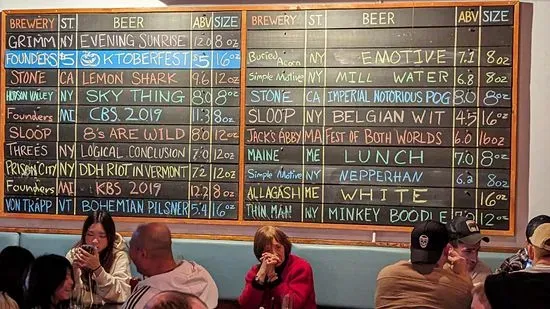 BREWERY ST. BEER ABV SIZE
GRIMM NY EVENING SUNRISE 12.0 8oz
FOUNDERS $5 OKTOBERFEST $5 16oz
STONE CA LEMON SHARK 9.6 12oz
HUDSON VALLEY NY SKY THING 8.0 8oz
Founders MI CBS 2019 11.3 8oz
SLOOP 8's ARE WILD 8.0 12oz
THREES NY LOGICAL CONCLUSION 7.0 12oz
PRISON CITY NY DDH RIOT IN VERMONT 7.2 12oz
Founders MI KBS 2019 12.2 8oz
VON TRAPP VT BOHEMIAN PILSNER 5.4 16oz
BREWERY ST. BEER ABV SIZE
Buried Acorn NY EMOTIVE 7.1 8oz
Simple Motive NY MILL WATER 6.8 8oz
STONE CA IMPERIAL NOTORIOUS POG 8.0 8oz
SLOOP NY BELGIAN WIT 4.5 16oz
JACK'S ABBY MA FEST OF BOTH WORLDS 6.0 16oz
MAINE ME LUNCH 7.0 8oz
Simple Motive NY NEPPERHAN 6.2 8oz
ALLAGASH ME WHITE 16oz
THIN MAN NY MINKEY BOODLE 7.0 12oz